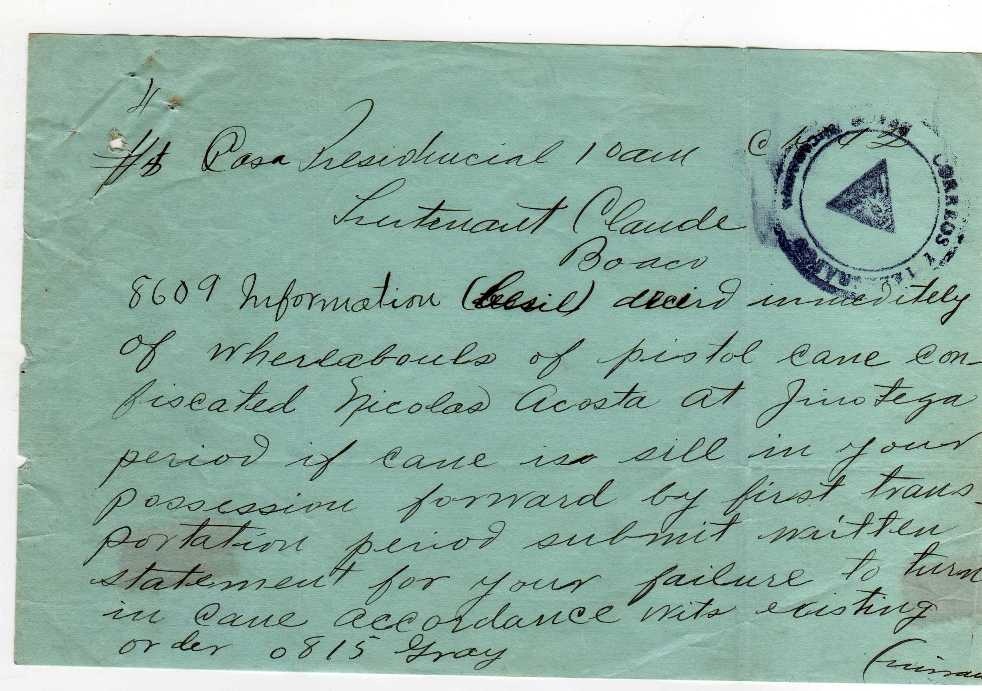 Casa Presidencial 10am
Lieutenant Claude
Boaco
8609 Information desird immeditely
of whereabouts of pistol cane con-
fiscated Nicolas Acosta at Jinotega
period if cane iso sill in your
possession forward by first trans-
portation period submit written
statement for your failure to turn
in cane accordance wits existing
order 0815 Gray
CORREOS Y